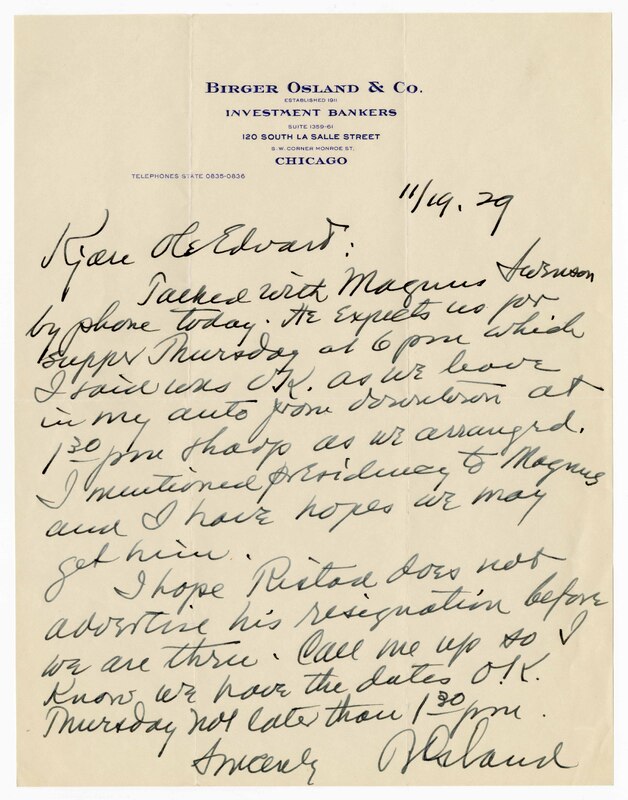 BIRGER OSLAND & CO.
ESTABLISHED 1911
INVESTMENT BANKERS
SUITE 1359-61
120 SOUTH LA SALLE STREET
S. W. CORNER MONROE ST.
CHICAGO
TELEPHONES STATE 0835-0836
11/19. 29
Kjære Ole Edvart:
Talked with Magnus Swenson
by phone today. He expects us for
supper Thursday at 6 pm which
I said was O.K. as we leave
in my auto from downtown at
1 30 pm sharp as we arranged.
I mentioned presidency to Magnus
and I have hopes we may
get him.
I hope Ristad does not
advertise his resignation before
we are thru. Call me up so I
know we have the dates O.K.
Thursday not later than 1 30 pm.
Sincerely BOsland